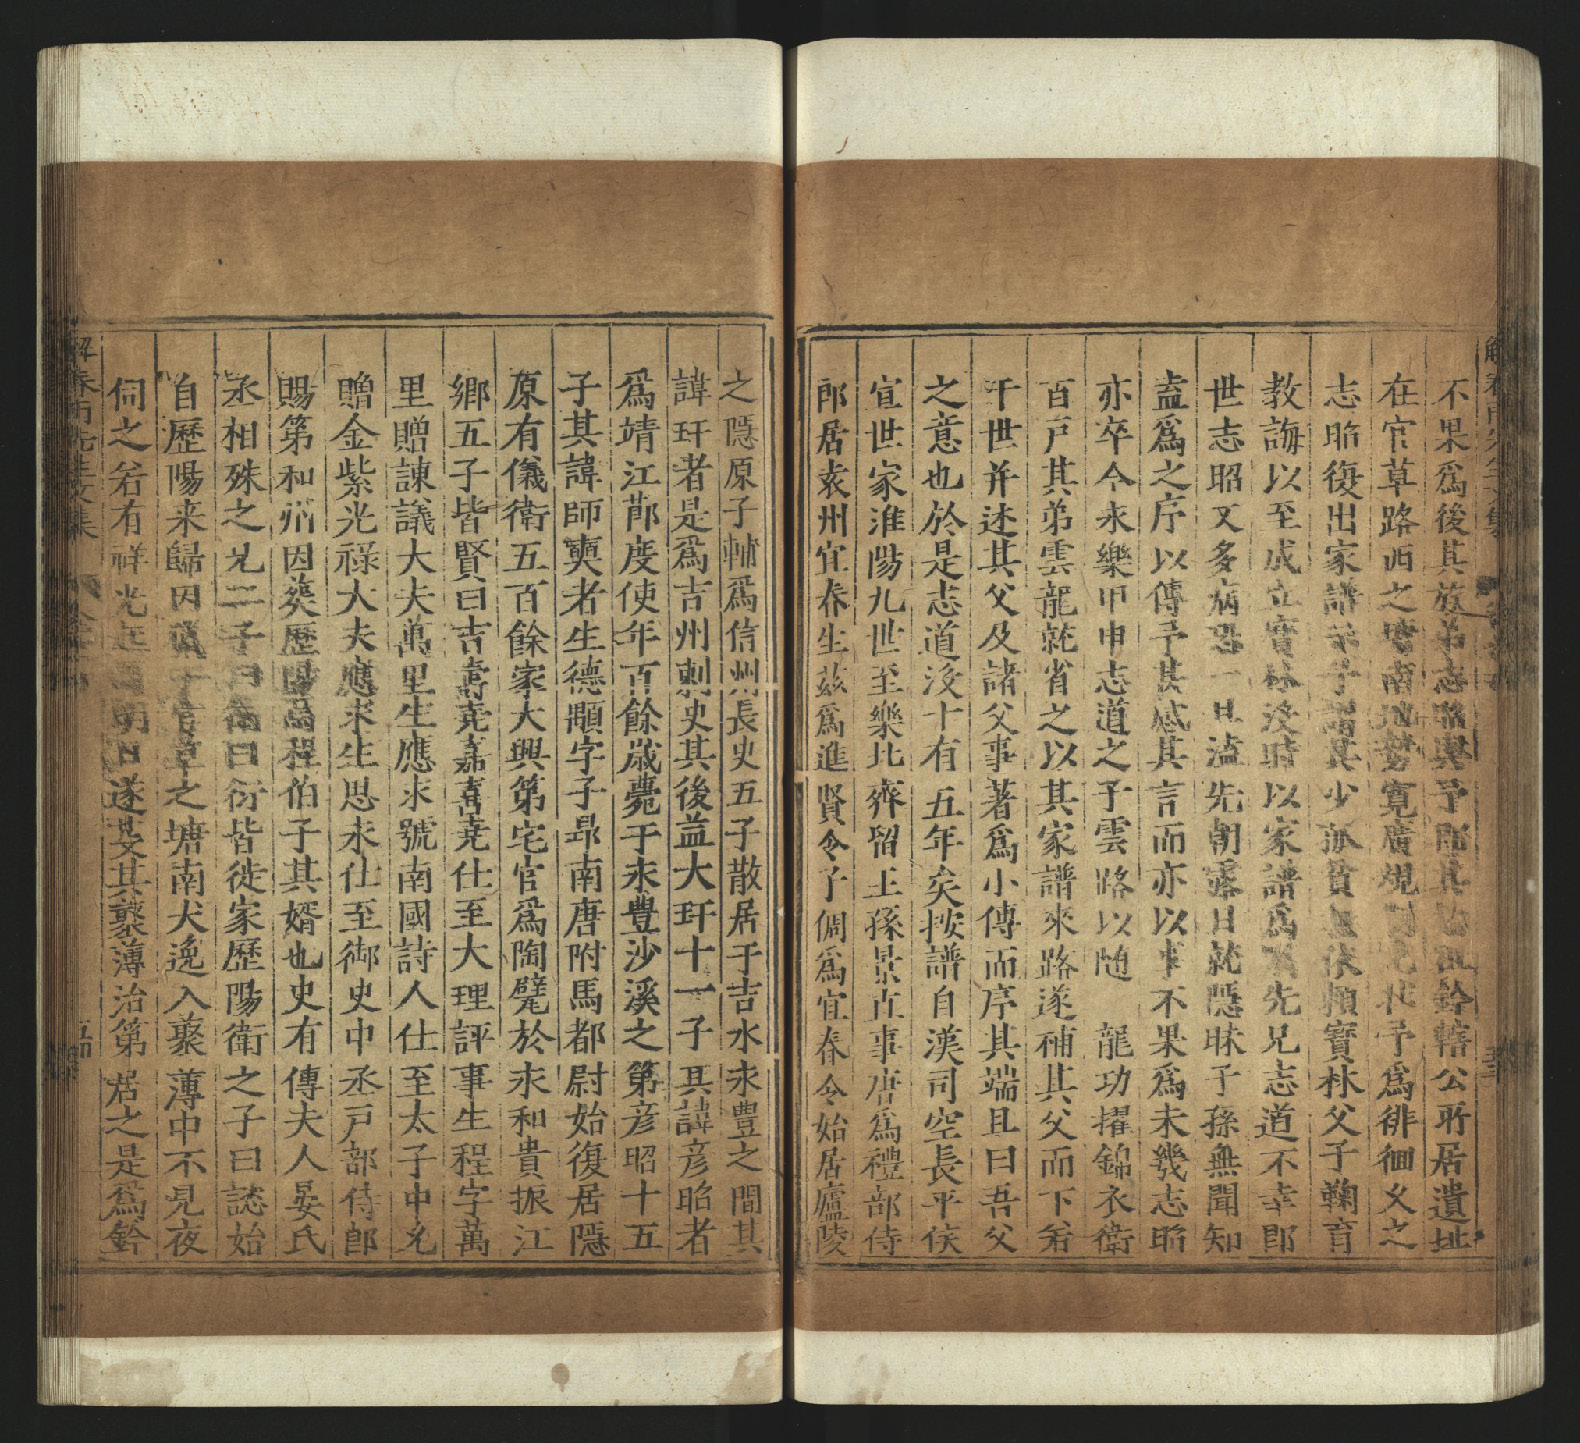 不果爲後其族弟志昭與予即其 祖鈐轄公所居遺址
在官草路西之塘南地勢寛廣規 予爲徘徊久之
志昭復出家譜示予謂其少孤貧無依頼寳林父子鞠育
教誨以至成立寳林没時以家譜爲 先兄志道不幸即
世志昭又多病恐一旦溘先朝露日就隱昧子孫無聞知
盍爲之序以傳予甚感其言而亦以事不果爲未㡬志昭
亦卒今永樂甲申志道之子雲路以随 龍功擢錦衣衛
百戸其弟雲龍就省之以其家譜來路遂補其父而下若
干世并述其父及諸父事著爲小傳而序其端且曰吾父
之意也於是志道没十有五年矣按譜自漢司空長平侯
宣世家淮陽九世至樂比齊留王孫景直事唐爲禮部侍
郎居袁州宜春生兹爲進賢令子倜爲宜春令始居廬陵
之隱原子輔爲信州長史五子散居于吉水永豊之間其
諱玕者是爲吉州刺史其後益大玕十一子其諱彦昭者
爲靖江節度使年百餘歳薨于永豊沙溪之第彦昭十五
子其諱師奭者生德顒字子昻南唐附馬都尉始復居隱
原有儀衛五百餘家大興第宅官爲陶甓於永和貴振江
鄉五子皆賢曰吉壽堯嘉喜堯仕至大理評事生程字萬
里贈諫議大夫萬里生應求號南國詩人仕至太子中允
贈金紫光祿大夫應求生思永仕至御史中丞戸部侍郎
賜第和州因葬歷陽爲程伯子其婿也史有傳夫人晏氏
丞相殊之兄二子曰衞曰衍皆徙家歷陽衛之子曰誌始
自歷陽来歸因 官草之塘南犬逸入藂薄中不見夜
伺之若有祥光 明日遂芟其藂薄治第居之是爲鈐